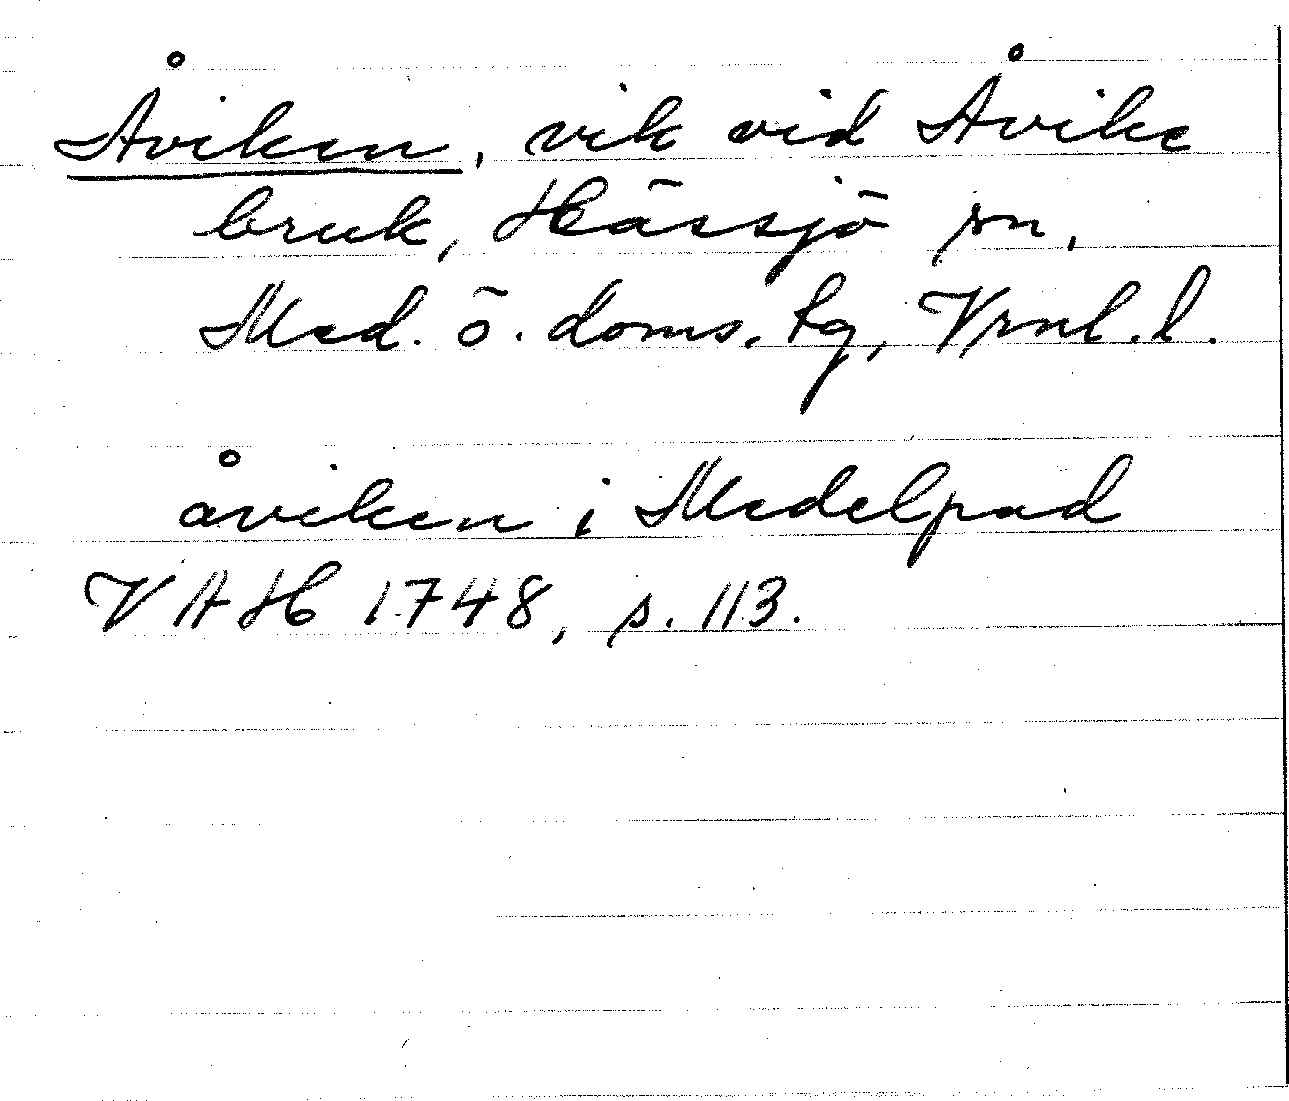 Åviken, vik vid Åvike
bruk, Hässjö sn,
Med. ö. doms. tg, Vrnl. l.
åviken i Medelpad
VAH 1748, s. 113.